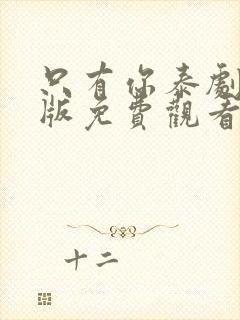 只有你泰劇
版免費觀看
十二